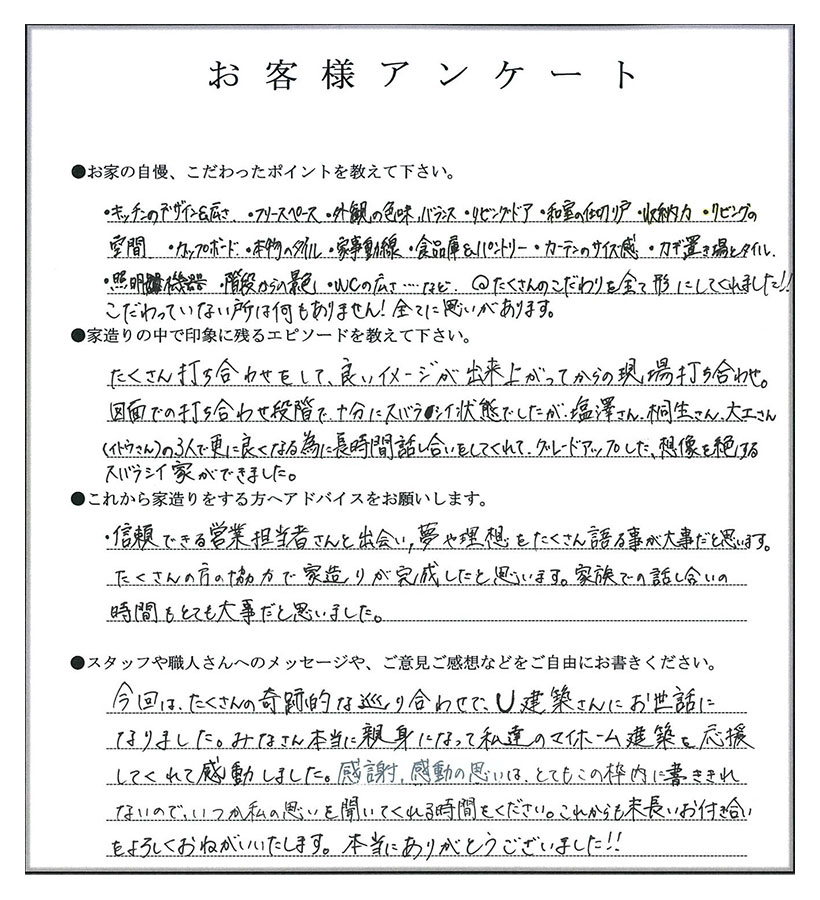 お客様アンケート
●お家の自慢、こだわったポイントを教えて下さい。
・キッチンのデザイン&広さ ・フリースペース ・外観の色味、バランス ・リビングドア ・和室の仕切り戸 ・収納力 ・リビングの
空間 ・カップボード ・本物のタイル ・家事動線 ・食品庫&パントリー ・カーテンのサイズ感 ・カギ置き場とタイル
・照明機器 ・階段からの景色 ・WCの広さ……など。 @たくさんのこだわりを全て形にしてくれました!!
こだわっていない所は何もありません!全てに思いがあります。
●家造りの中で印象に残るエピソードを教えて下さい。
たくさん打ち合わせをして、良いイメージが出来上がってからの現場打ち合わせ。
図面での打ち合わせ段階で、十分にスバラシイ状態でしたが、塩澤さん、桐生さん、大工さん
(イトウさん)の3人で更に良くなる為に長時間話し合いをしてくれて、グレードアップした、想像を絶する
スバラシイ家ができました。
●これから家造りをする方へアドバイスをお願いします。
・信頼できる営業担当者さんと出会い,夢や理想をたくさん語る事が大事だと思います。
たくさんの方の協力で家造りが完成したと思います。家族での話し合いの
時間もとても大事だと思いました。
●スタッフや職人さんへのメッセージや、ご意見ご感想などをご自由にお書きください。
今回は、たくさんの奇跡的な巡り合わせで、U建築さんにお世話に
なりました。みなさん本当に親身になって私達のマイホーム建築を応援
してくれて感動しました。感謝,感動の思いは、とてもこの枠内に書ききれ
ないので、いつか私の思いを聞いてくれる時間をください。これからも末長いお付き合い
をよろしくおねがいいたします。本当にありがとうございました!!